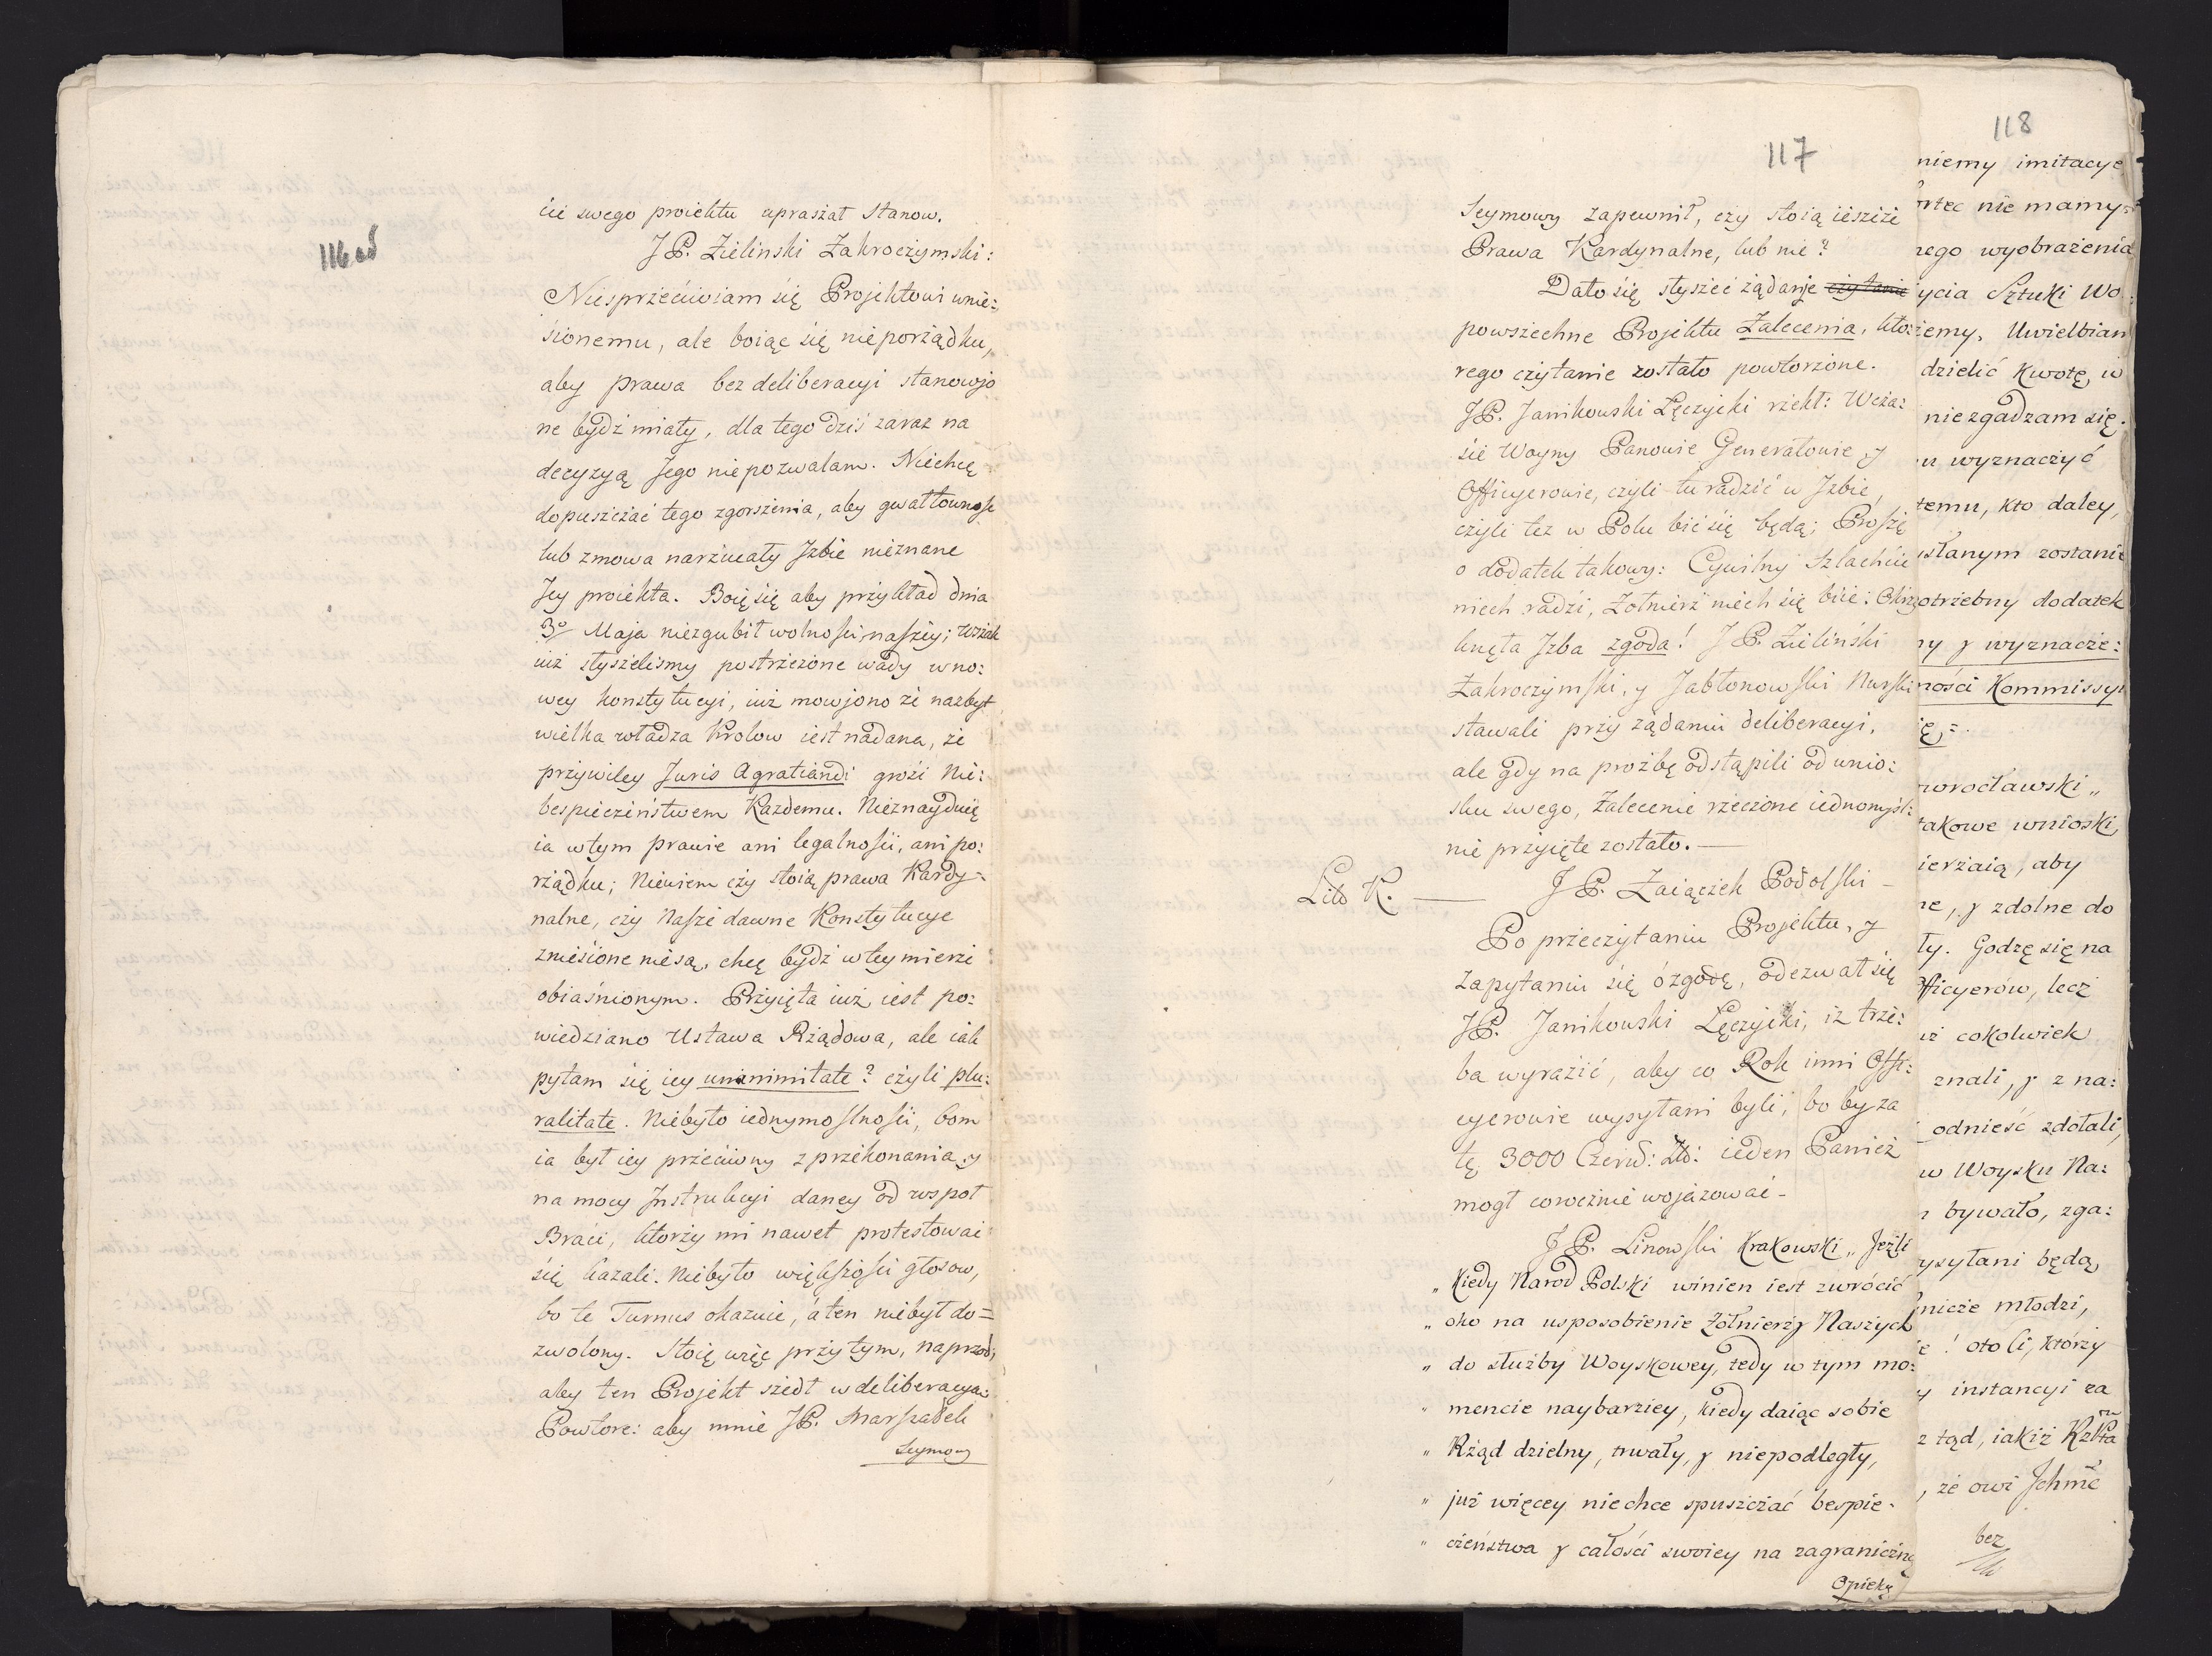 116 ad
cie swego proiektu upraszał Stanow.
JP. Zielinski Zakroczymski:
Niesprzeciwiam się Projektowi wnie:
sionemu, ale boiąc się nieporządku,
aby prawa bez deliberacyi stanowjo
ne bydź miały, dla tego dziś zaraz na
decyzyą Jego niepozwalam. Niechcę
dopuszczać tego zgorszenia, aby gwałtowność
lub zmowa narzucały Jzbie nieznane
Jey proiekta. Boię się aby przykład dnia
3º Maja niezgubił wolności naszey; wszak
iuż słyszeliśmy postrzeżone wady w no:
wey konstytucyi, iuż mowjono że nazbyt
wielka władza Krolow iest nadana, że
przywiley Juris Agratiandi grozi Nie:
bespieczeństwem Każdemu. Nieznayduię
ia w tym prawie ani legalności, ani po:
rządku; Niewiem czy stoią prawa Kardy=
nalne, czy Nasze dawne Konstytucye
zniesione nie są, chcę bydź w tey mierze
obiaśnionym. Przyięta iuż iest po:
wiedziano Ustawa Rządowa, ale iak
pytam się iey unanimitate? czyli plu:
ralitate. Niebyło iednymoslności, bom
ia był iey przeciwny z przekonania, y
na mocy Jnstrukcyi daney od wspoł
Braci, ktorzy mi nawet protestować
się kazali. Niebyło większości głosow,
bo te Turnus okazuie, a ten niebył do=
zwolony. Stoię więc przy tym, naprzod,
aby ten Projekt szedł w deliberacyą.
Powtore: aby mnie JP. Marszałek
Seymowy
117
Seymowy zapewnił, czy stoią ieszcze
Prawa Kardynalne, lub nie?
Dało się słyszeć żądanie czytanie
powszechne Projektu Zalecenia, kto:
rego czytanie zostało powtorzone.
JP. Janikowski Łęczycki rzekł: W cza:
sie Woyny Panowie Generałowie y
Officyerowie, czyli tu radzić w Jzbie,
czyli też w Polu bić się będą; Proszę
o dodatek takowy: Cywilny Szlachcic
niech radzi, Zołnierz niech się biie: Okrzy
knęła Jzba zgoda! JP. Zieliński
Zakroczymski, y Jabłonowski Nurski
stawali przy żądaniu deliberacyi,
ale gdy na prożbę odstąpili od wnio:
sku swego, Zalecenie rzeczone iednomyśl:
nie przyięte zostało.—
Litt K. — JP. Zaiączek Podolski —
Po przeczytaniu Projektu, y
zapytaniu się o zgodę, odezwał się
JP. Janikowski Łęczycki, iż trze:
ba wyrazić, aby co Rok inni Offi:
cyerowie wysyłani byli, bo by za
tę 3000 Czerw: Zło: ieden Panicz
mogł corocznie wojażować —
JP. Linowski Krakowski „ Jeżli
„ Kiedy Narod Polski winien iest zwrócić
„ oko na usposobienie Żołnierzy Naszych
„ do służby Woyskowey, tedy w tym mo:
„ mencie naybarziey, kiedy daiąc sobie
„ Rżąd dzielny, trwały, y niepodległy,
„ już więcey niechce spuszczać bespie-
„ czeństwa y całości swoiey na zagraniczną
Opiekę
118
niemy imitacye
ortec nie mamy
nego wyobrażenia
ycia Sztuki Wo:
żemy. Uwielbiam
dzielić Kwotę, w
niezgadzam się.
u wyznaczyć
temu, kto daley,
słanym zostanie
otrzebny dodatek
ny y wyznacze:
ności Kommissyi
ię =.
worocławski „
takowe wnioski,
ierzaią, aby
ne, y zdolne do
ły. Godzę się na
fficyerów, lecz
uż cokolwiek
znali, y z na:
odnieść zdołali,
w Woysku Na:
bywało, zga:
ysyłani będą,
nicze młodzi,
! oto Ci, którzy
y instancyi za
z tąd, iakiż Rzltta
, że owi Jchmć
bez